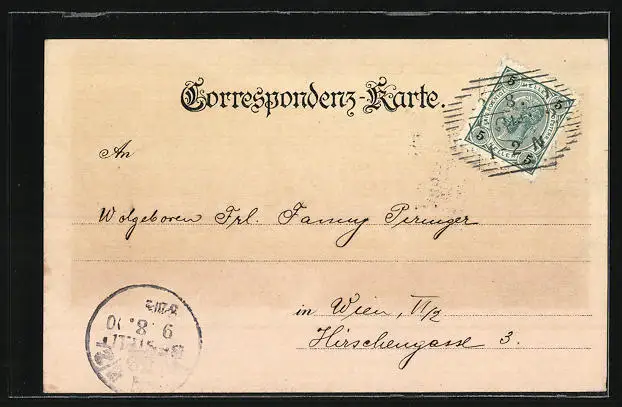 Correspondenz-Karte.
5 5
5 5
8
2
An
Wolgeboren Frl. Fanny Peringer
in Wien, VI/2
Hirschengasse 3.
9.8.10